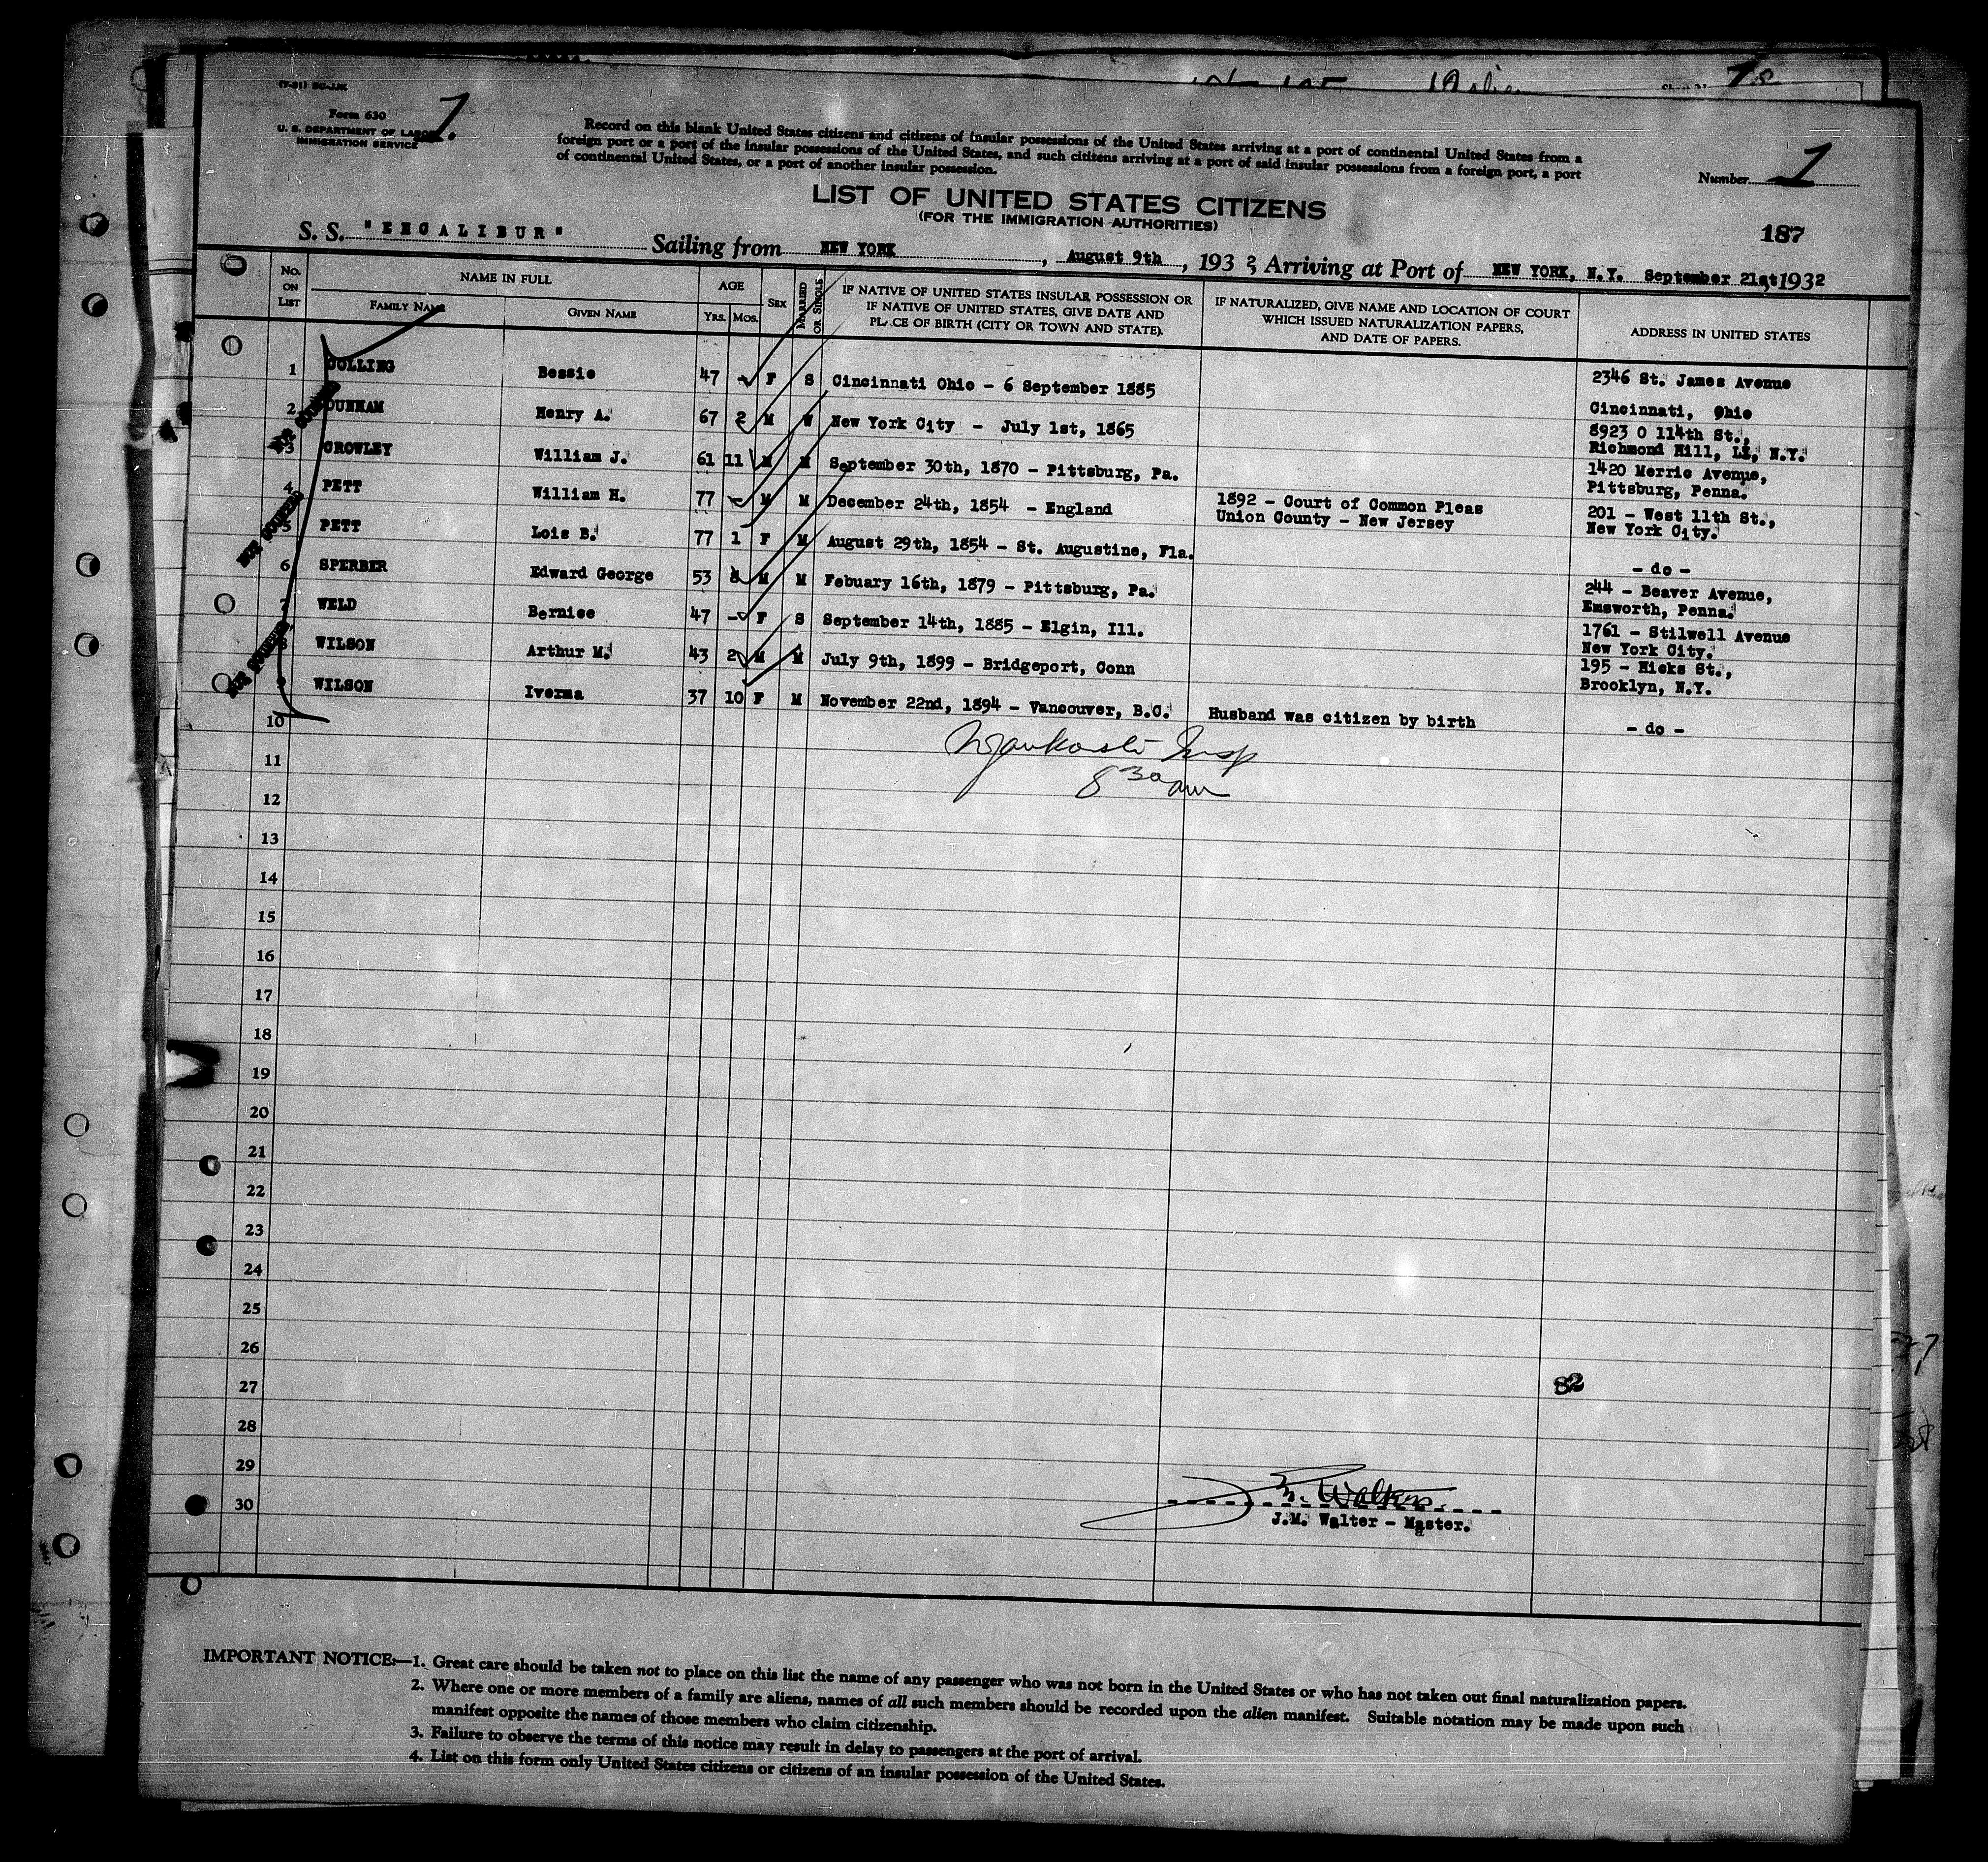 (7-31) SC-J.JK
Form 630
U. S. DEPARTMENT OF LABOR
IMMIGRATION SERVICE
1.
Record on this blank United States citizens and citizens of insular possessions of the United States arriving at a port of continental United States from a
foreign port or a port of the insular possessions of the United States, and such citizens arriving at a port of said insular possessions from a foreign port, a port
of continental United States, or a port of another insular possession.
Number 1
LIST OF UNITED STATES CITIZENS
(FOR THE IMMIGRATION AUTHORITIES)
187
S. S. "EXCALIBUR" Sailing from NEW YORK, August 9th, 1932, Arriving at Port of NEW YORK, N.Y. September 21st, 1932
No. ON LIST
NAME IN FULL
FAMILY NAME GIVEN NAME
AGE
YRS. MOS.
SEX
MARRIED OR SINGLE
IF NATIVE OF UNITED STATES INSULAR POSSESSION OR
IF NATIVE OF UNITED STATES, GIVE DATE AND
PLACE OF BIRTH (CITY OR TOWN AND STATE).
IF NATURALIZED, GIVE NAME AND LOCATION OF COURT
WHICH ISSUED NATURALIZATION PAPERS,
AND DATE OF PAPERS.
ADDRESS IN UNITED STATES
1 DOLLING Bessie 47 - F S Cincinnati Ohio - 6 September 1885 2346 St. James Avenue
Cincinnati, Ohio
2 DUNHAM Henry A. 67 2 M W New York City - July 1st, 1865 8923 O 114th St.,
Richmond Hill, LI, N.Y.
3 CROWLEY William J. 61 11 M M September 30th, 1870 - Pittsburg, Pa. 1420 Merric Avenue,
Pittsburg, Penna.
4 PETT William H. 77 - M M December 24th, 1854 - England 1892 - Court of Common Pleas 201 - West 11th St.,
Union County - New Jersey New York City.
5 PETT Lois B. 77 1 F M August 29th, 1854 - St. Augustine, Fla. - do -
6 SPERBER Edward George 53 8 M M Febuary 16th, 1879 - Pittsburg, Pa. 244 - Beaver Avenue,
Emsworth, Penna.
7 WELD Bernice 47 - F S September 14th, 1885 - Elgin, Ill. 1761 - Stilwell Avenue
New York City.
8 WILSON Arthur M. 43 2 M M July 9th, 1899 - Bridgeport, Conn 195 - Hicks St.,
Brooklyn, N.Y.
9 WILSON Iverma 37 10 F M November 22nd, 1894 - Vancouver, B.C. Husband was citizen by birth - do -
10
Insp
11
8 30 am
12
13
14
15
16
17
18
19
20
21
22
23
24
25
26
27
82
28
29
30
J.M. Walter - Master.
IMPORTANT NOTICE:—1. Great care should be taken not to place on this list the name of any passenger who was not born in the United States or who has not taken out final naturalization papers.
2. Where one or more members of a family are aliens, names of all such members should be recorded upon the alien manifest. Suitable notation may be made upon such
manifest opposite the names of those members who claim citizenship.
3. Failure to observe the terms of this notice may result in delay to passengers at the port of arrival.
4. List on this form only United States citizens or citizens of an insular possession of the United States.